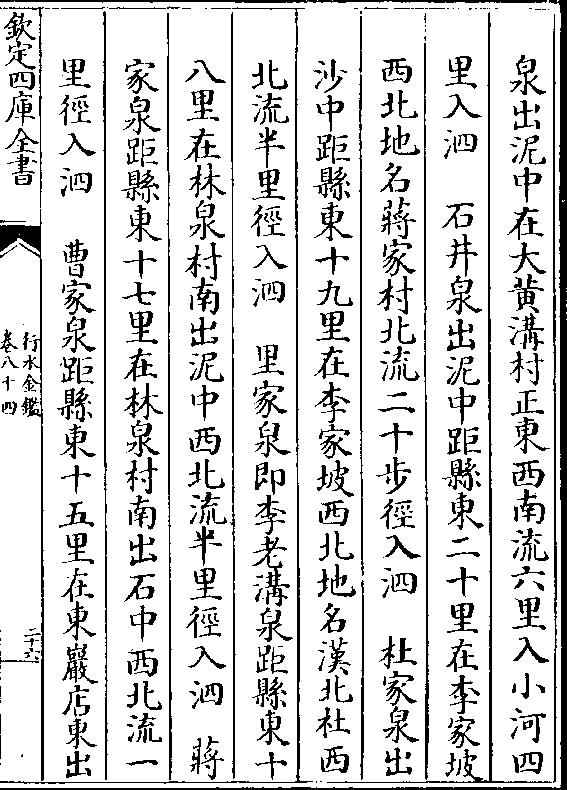 泉出泥中在大黄溝村正東西南流六里入小河四
里入泗　石井泉出泥中距縣東二十里在李家坡
西北地名蔣家村北流二十步徑入泗　杜家泉出
沙中距縣東十九里在李家坡西北地名漢北杜西
北流半里徑入泗　里家泉即李老溝泉距縣東十
八里在林泉村南出泥中西北流半里徑入泗　蔣
家泉距縣東十七里在林泉村南出石中西北流一
里徑入泗　曹家泉距縣東十五里在東巖店東出
欽定四庫全書
行水金鑑
卷八十四
二十六